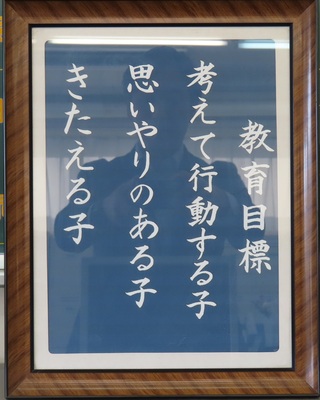 教育目標
考えて行動する子
思いやりのある子
きたえる子